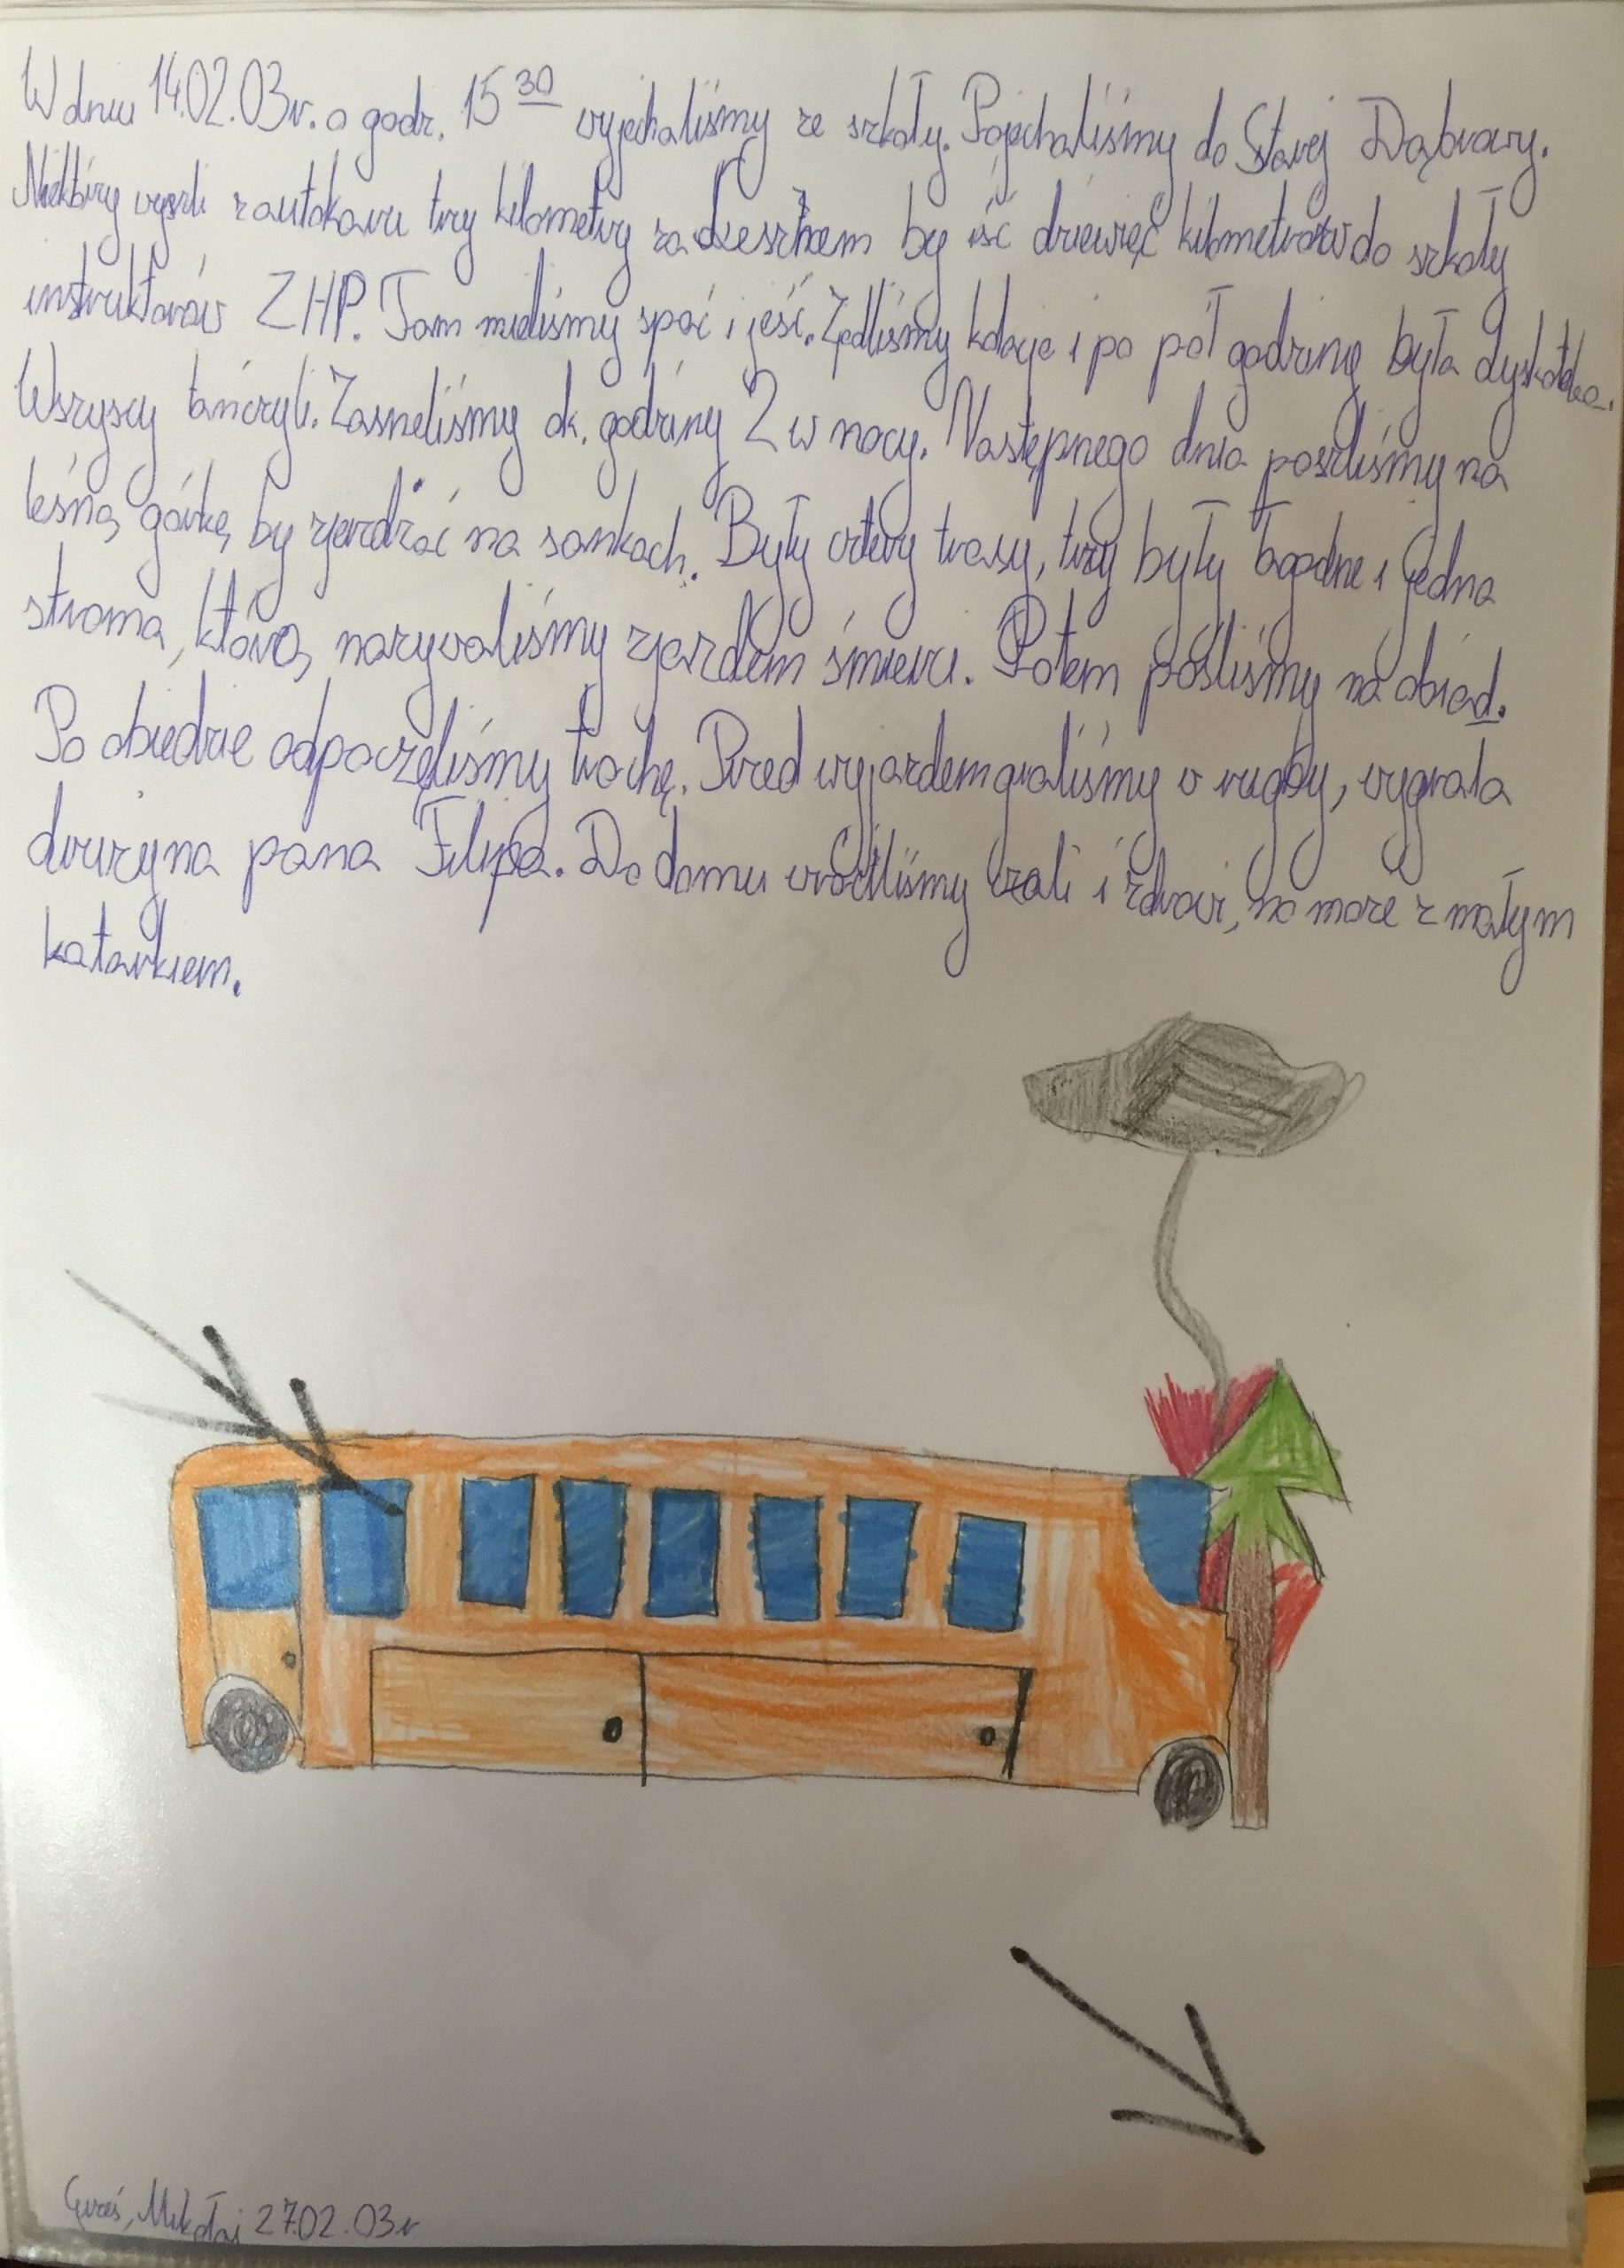 W dniu 14.02.03r. o godz. 15 30 wyjechaliśmy ze szkoły. Pojechaliśmy do Starej Dąbrowy.
Niektóry wyszli z autokaru trzy kilometry za by iść dziewięć kilometrów do szkoły
instruktorów ZHP. Tam mieliśmy spać i jeść. Zjedliśmy kolacje i po pół godzinę była dyskoteka.
Wszyscy tańczyli. Zasneliśmy ok. godziny 2 w nocy. Następnego dnia poszliśmy na
leśną górkę by zjerdżać na sankach. Były cztery trasy, trzy były łagodne i jedna
stroma, którą nazywaliśmy zjazdem śmierci. Potem pośliśmy na obiad.
Po obiedzie odpoczęliśmy trochę. Przed wyjazdem graliśmy w rugby, wygrała
drużyna pana Filipa. Do domu wróciliśmy cali i zdrowi, no może z małym
katarkiem.
Mikołaj 27.02.03r